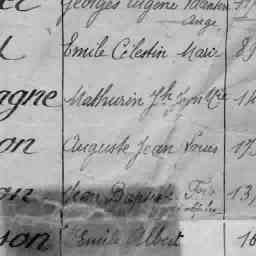 Georges Eugène
Ange
Emile Célestin Marie 89
agne Mathurin Jph Jean Mie 14
on Auguste Jean Louis 17
on Jean Baptiste 13
son Emile Albert 16